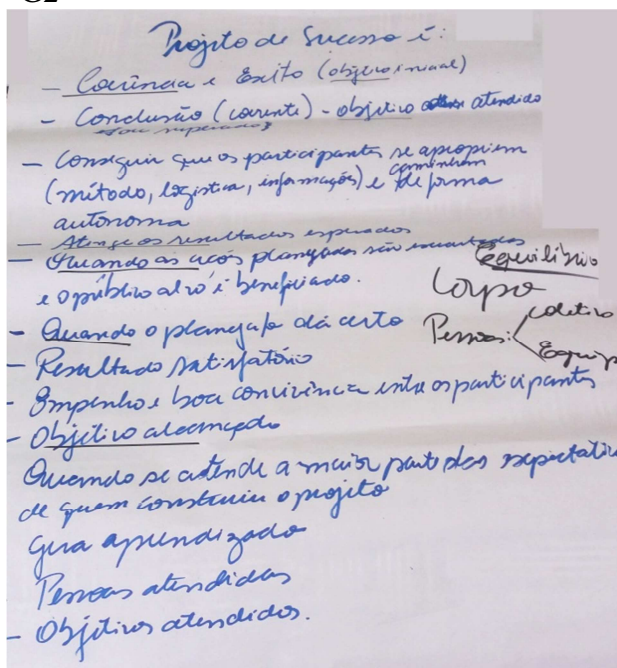 Projeto de Sucesso é:
- Coerência e Êxito (objetivo inicial)
- Conclusão (coerente) - objetivo atendido
e/ou superados
- Conseguir que os participantes se apropriem
(método, logística, informações) e caminham de forma
autônoma
- Atinge os resultados esperados
- Quando as ações planejadas são executadas
e o público alvo é beneficiado.
Equilíbrio
Corpo
Pessoas: coletivo
Equipe
- Quando o planejado dá certo
- Resultado satisfatório
- Empenho e boa convivência entre os participantes
- Objetivo alcançado
Quando se atende a maior parte das expectativa
de quem construiu o projeto
Gera aprendizado
Pessoas atendidas
- Objetivos atendidos.